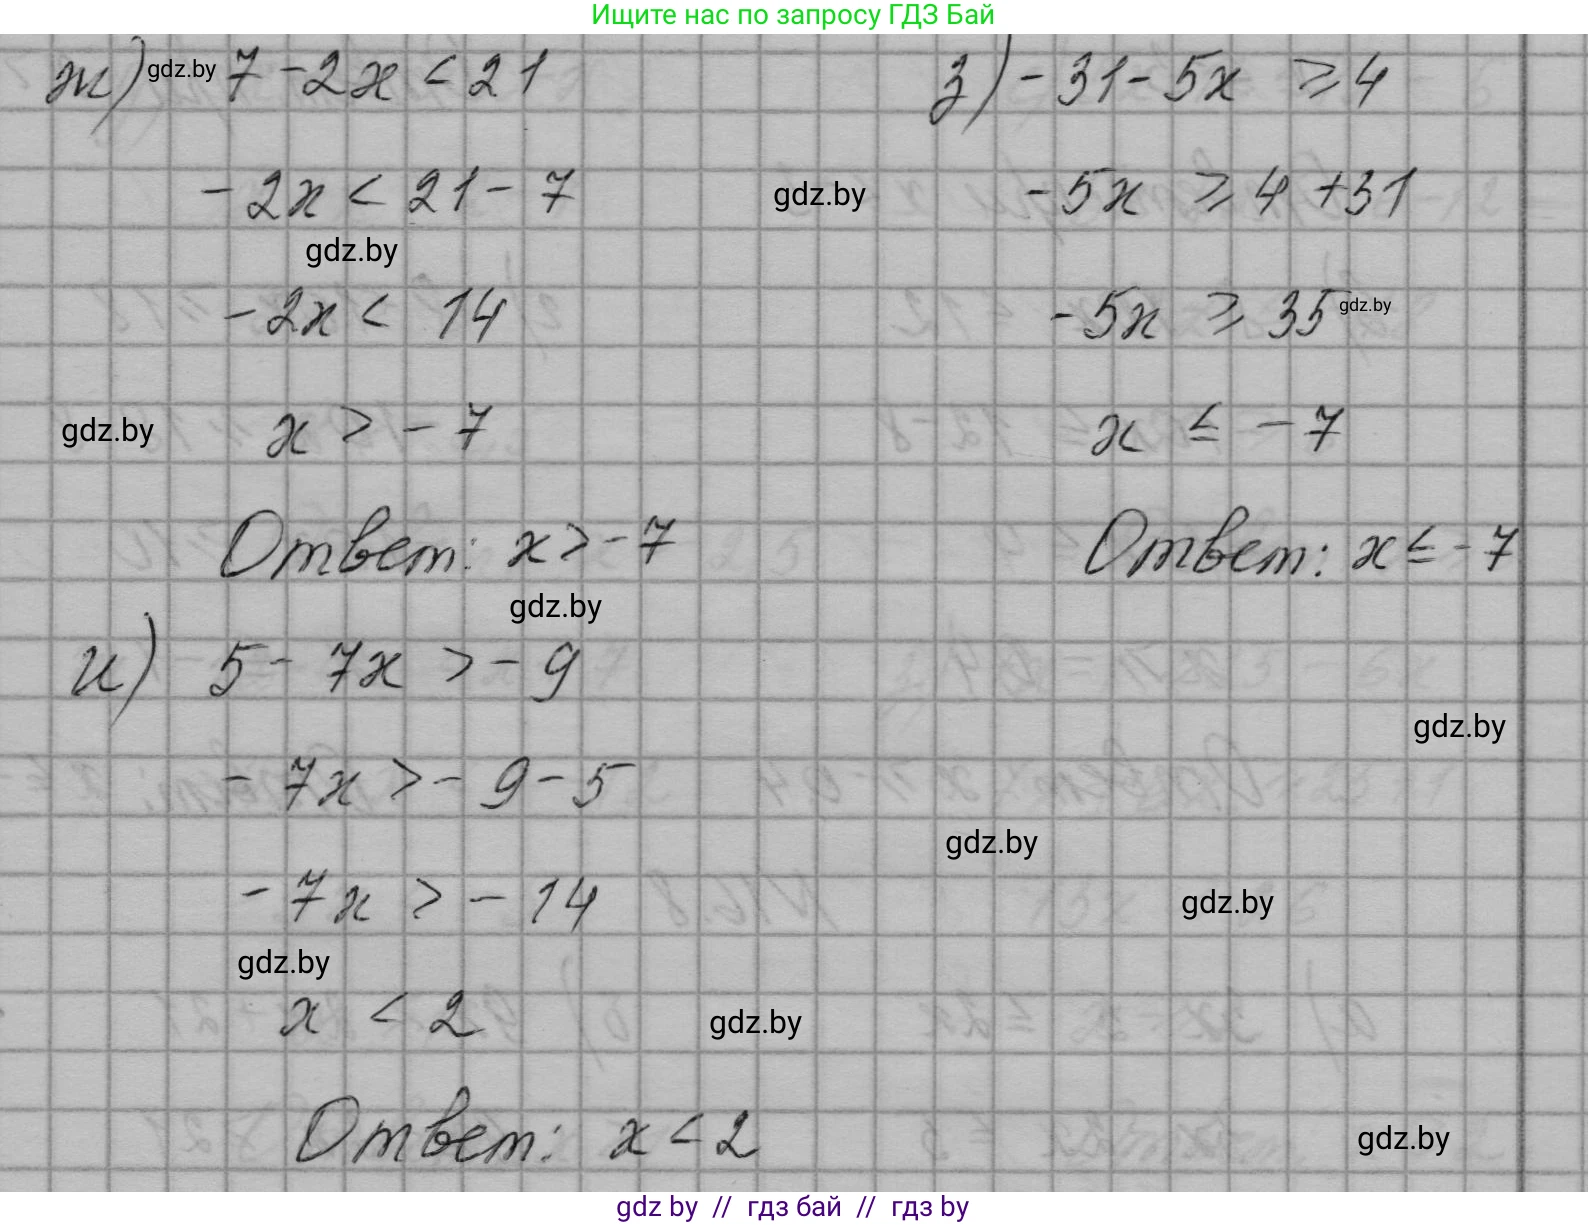 Ищите нас по запросу ГДЗ Бай
ж) gdz.by 7 - 2x < 21
- 2x < 21 - 7
gdz.by
- 2x < 14
gdz.by x > - 7
Ответ: x > - 7
gdz.by
з) - 31 - 5x ⩾ 4
gdz.by - 5x ⩾ 4 + 31
- 5x ⩾ 35 gdz.by
x ≤ - 7
Ответ: x ≤ - 7
и) 5 - 7x > - 9
gdz.by
- 7x > - 9 - 5
gdz.by
- 7x > - 14
gdz.by
gdz.by
x < 2
gdz.by
Ответ: x < 2
gdz.by
gdz by // гдз бай // гдз by